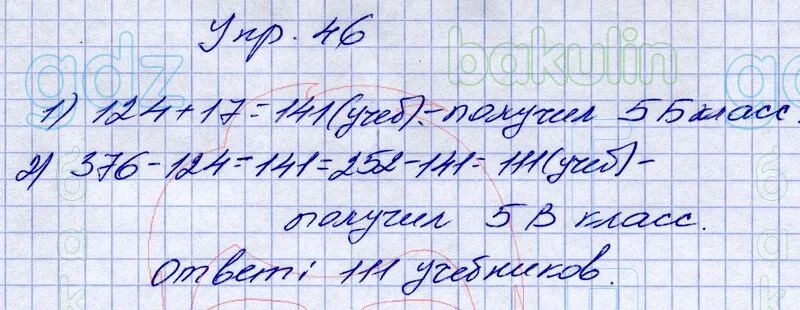 Упр. 46
1) 124 + 17 = 141 (учеб). - получил 5 Б класс.
2) 376 - 124 = 141 = 252 - 141 = 111 (учеб) -
получил 5 В класс.
Ответ: 111 учебников.
gdz
bakulin